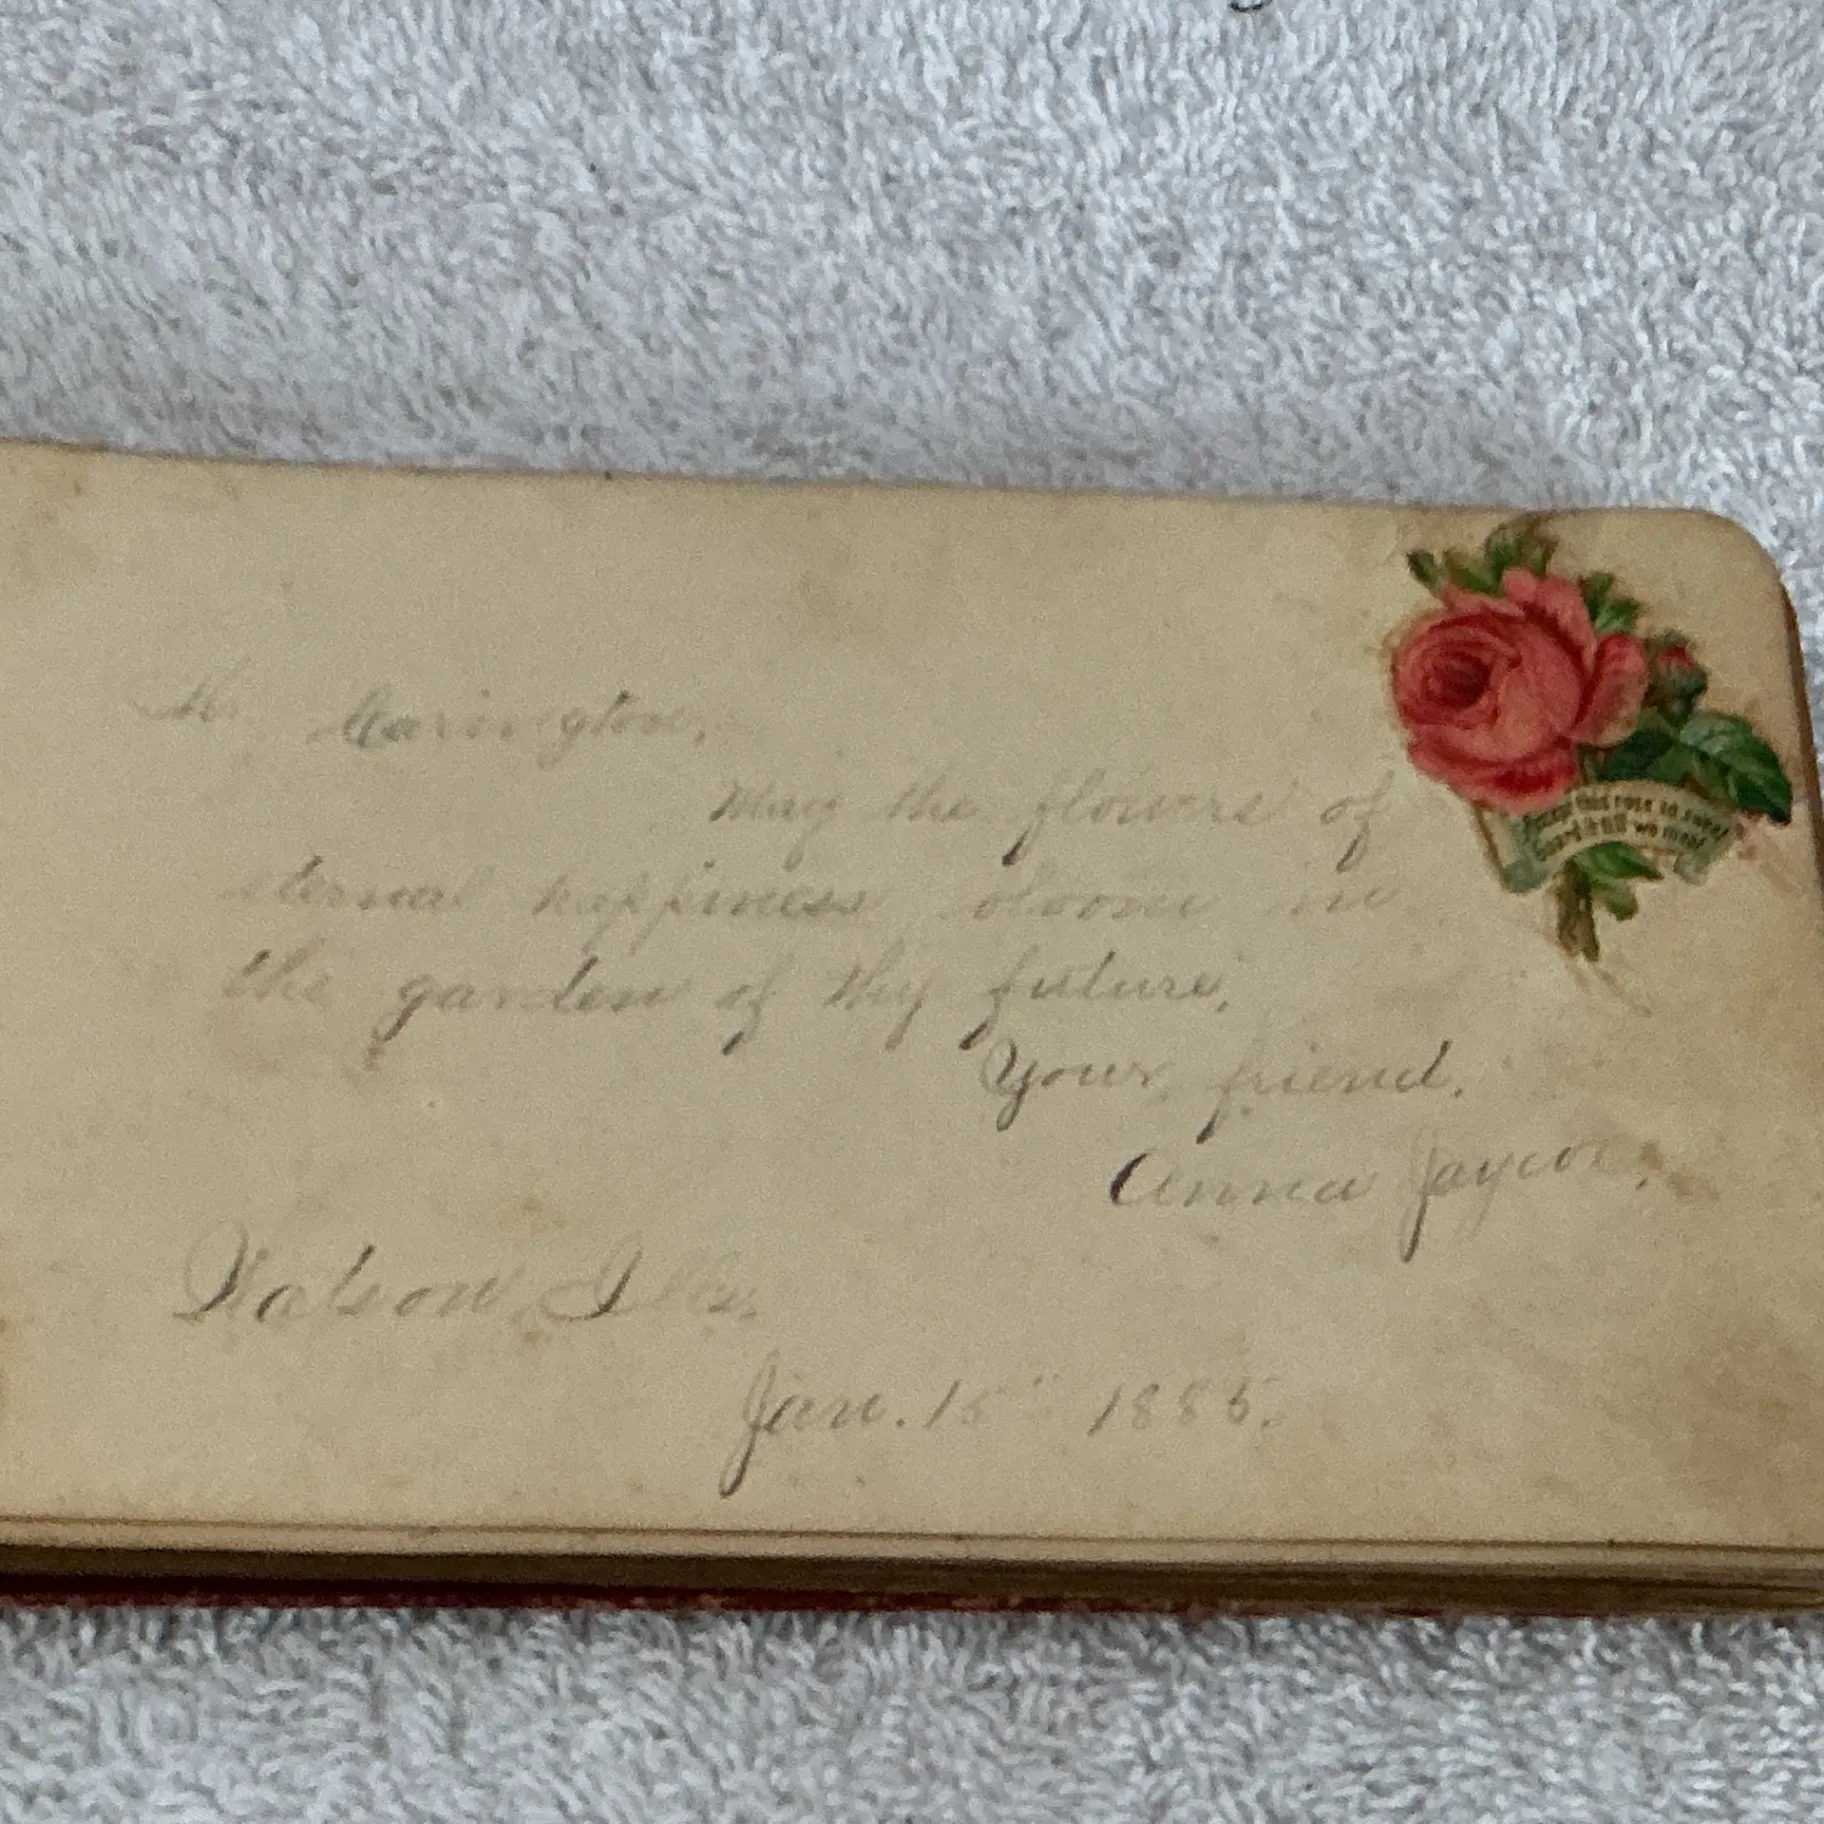 Mr. Carington,
May the flowers of
eternal happiness bloom in
the garden of thy future,
Your friend.
Anna Jaycox.
Watson, Ills.
Jan. 15" 1885.
Accept this rose so sweet
Guard it till we meet